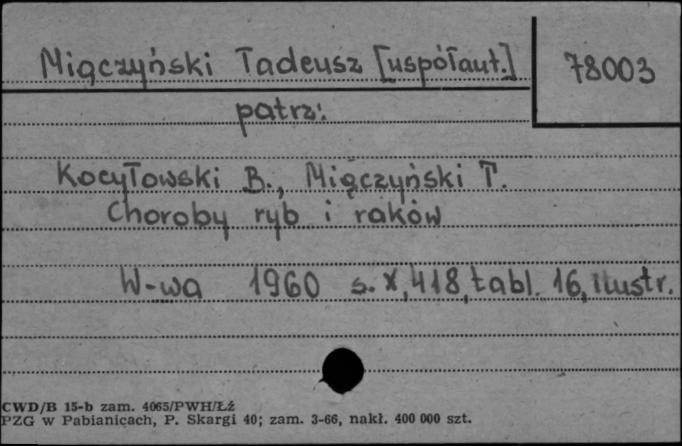 Miączyński Tadeusz [uspółaut.]
78003
patrz:
Kocyłowski B., Miączyński T.
Choroby ryb i raków
W-wa 1960 s. X, 418, tabl. 16, ilustr.
CWD/B 15-b zam. 4065/PWH/Łź
PZG w Pabianicach, P. Skargi 40; zam. 3-66, nakł. 400 000 szt.